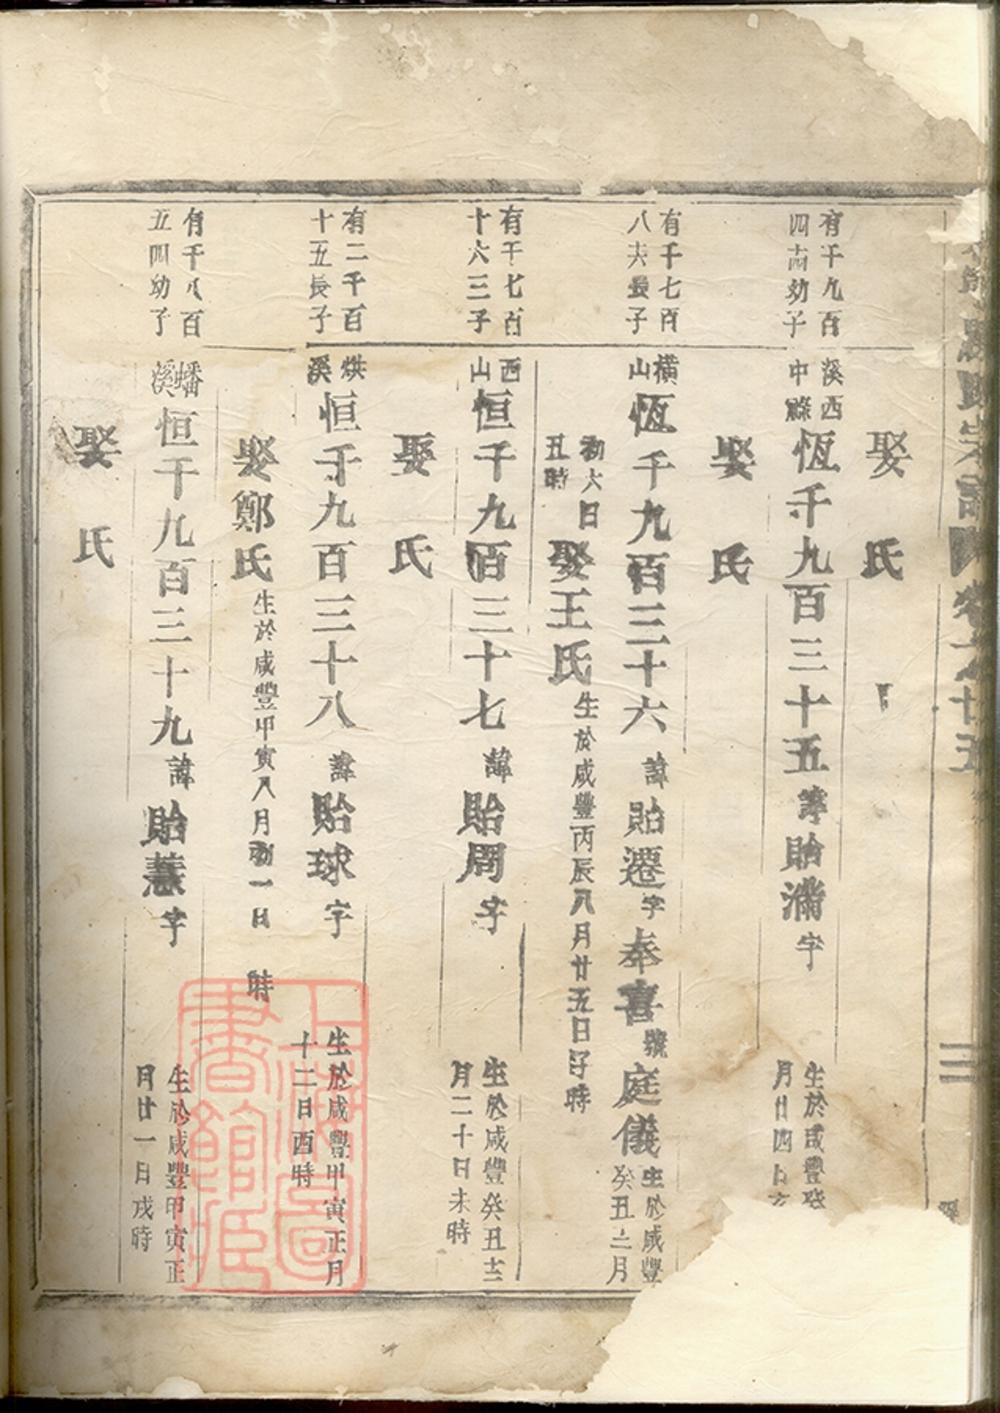 娶 氏
有千九百
四十四幼子
溪西
中 恆千九百三十五 諱 貽滿 字
生於咸豐癸
月廿四日亥
娶 氏
有千七百
八六長子
橫
山 恆千九百三十六 諱 貽遷 字 奉喜 號 庭儀 生於咸豐
癸丑二月
初六日
丑時
娶王氏 生於咸豐丙辰八月廿五日子時
有千七百
十六三子
西
山 恒千九百三十七 諱 貽周 字
生於咸豐癸丑十二
月二十日未時
娶 氏
有二千百
十五長子
烘
溪 恒千九百三十八 諱 貽球 字
生於咸豐甲寅正月
十二日酉時
娶鄭氏 生於咸豐甲寅八月初一日 時
有千八百
五四幼子
蟠
溪 恒千九百三十九 諱 貽慧 字
生於咸豐甲寅正
月廿一日戌時
娶 氏
上海圖
書館藏